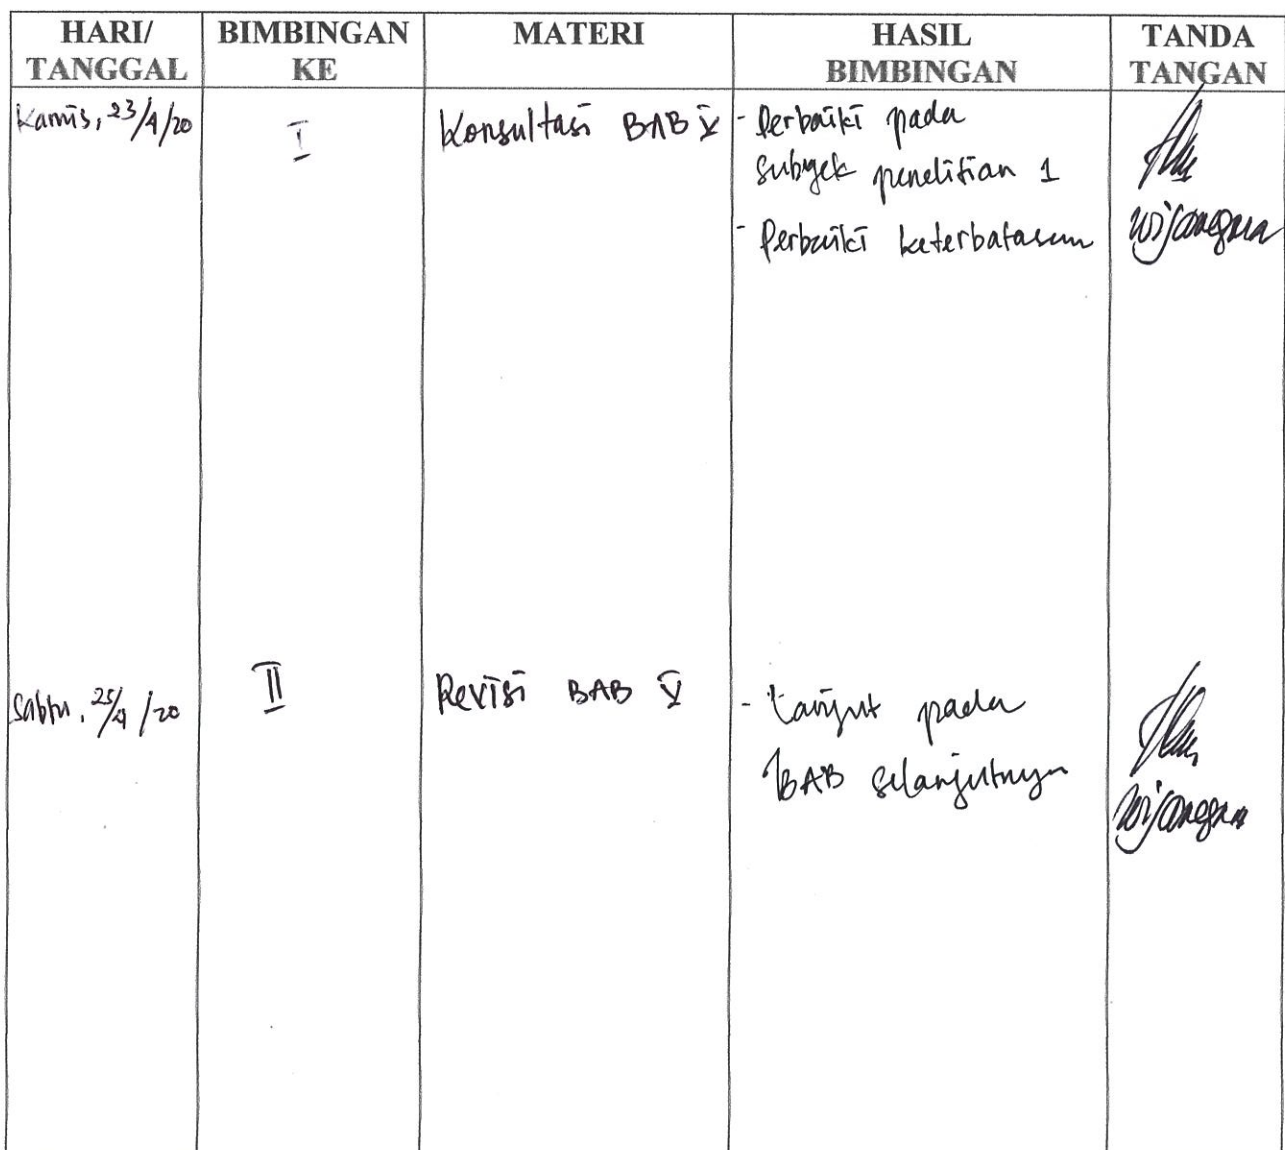 HARI/ TANGGAL BIMBINGAN KE MATERI HASIL BIMBINGAN TANDA TANGAN
Kamis, 23/4/20 I Konsultasi BAB V - Perbaiki pada
subyek penelitian 1
- Perbaiki keterbatasan
Sabtu, 25/4/20 II Revisi BAB V - Lanjut pada
BAB selanjutnya